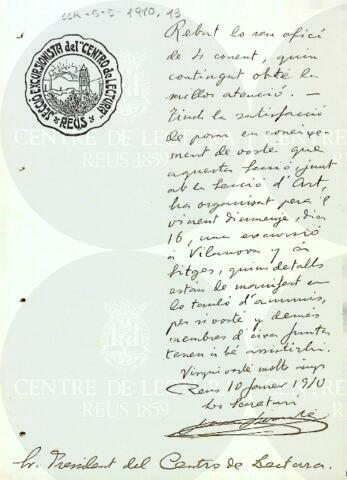 CCR-5-5-1910, 13
SECCIÓ EXCURSIONISTA del "CENTRO de LECTURA"
REUS
Rebut lo seu ofici
de 4 corrent, quin
contingut obté la
millor atenció. —
Tinch la satisfacció
de posar en coneixe-
ment de vosté que
aquesta Secció, junt
ab la Secció d'Art,
ha organisat pera 'l
vinent diumenje, dia
16, una excursió
a Vilanova y á
Sitges, quins detalls
están de manifest en
lo tauló d'anuncis,
per si vosté y demés
membres d'eixa Junta
tenen á bé assistirhi.
Visqui vosté molts anys
Reus 10 Janer 1910
Lo Secretari
Sr. President del Centro de Lectura.
CENTRE DE LECTURA
REUS 1859
CENTRE DE LECTURA
REUS 1859